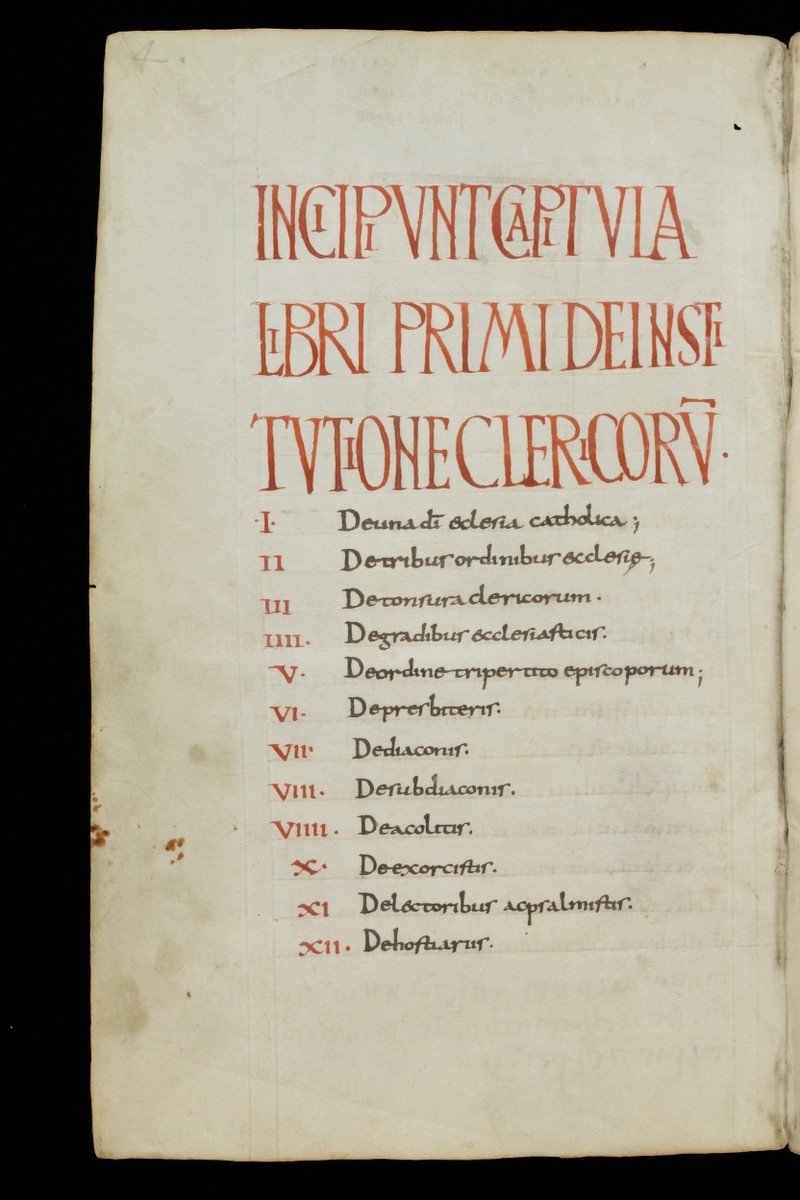 4
INCIPIVNT CAPITVLA
LIBRI PRIMI DE INSTI
TVTIONE CLERICORV̅·
·I· De una dī eclesia catholica ;
II De tribus ordinibus ecclesię ;
III De tonsura clericorum ·
IIII. De gradibus ecclesiasticis.
V· De ordine tripertito episcoporum ;
VI· De presbiteris.
VII· De diaconis.
VIII· De subdiaconis.
VIIII· De acolitis.
X· De exorcistis.
XI De lectoribus ac psalmistis.
XII· De hostiariis.